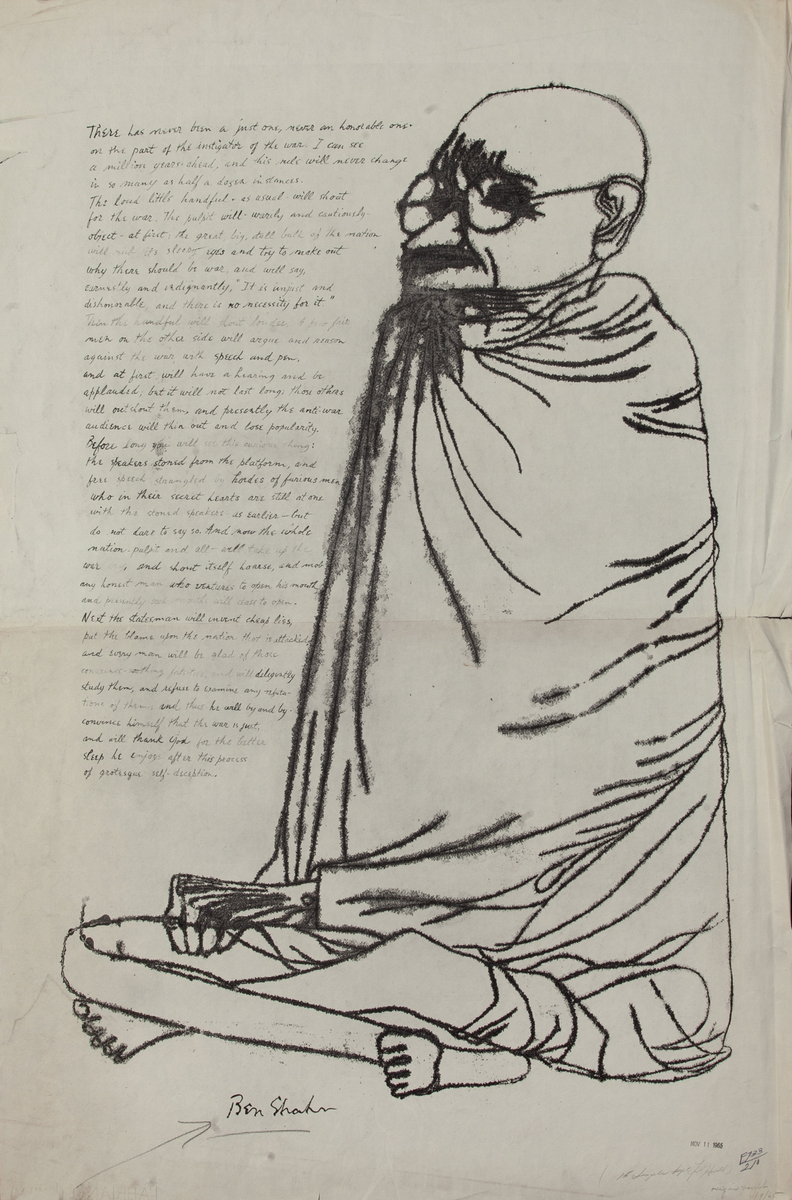 There has never been a just one, never an honorable one-
on the part of the instigator of the war. I can see
a million years ahead, and his rule will never change
in so many as half a dozen instances.
The loud little handful - as usual - will shout
for the war. The pulpit will - warily and cautiously -
object - at first; the great, big, dull bulk of the nation
will rub its sleepy eyes and try to make out
why there should be war, and will say,
earnestly and indignantly, "It is unjust and
dishonorable, and there is no necessity for it."
Then the handful will shout louder. A few fair
men on the other side will argue and reason
against the war with speech and pen,
and at first will have a hearing and be
applauded; but it will not last long; those others
will outshout them, and presently the anti-war
audience will thin out and lose popularity.
Before long you will see this curious thing:
the speakers stoned from the platform, and
free speech strangled by hordes of furious men
who in their secret hearts are still at one
with the stoned speakers - as earlier - but
do not dare to say so. And now the whole
nation - pulpit and all - will take up the
war and shout itself hoarse, and mob
any honest man who ventures to open his mouth;
and presently such mouths will cease to open.
Next the statesman will invent cheap lies,
put the blame upon the nation that is attacked
and every man will be glad of those
conscience-soothing falsities, and will diligently
study them, and refuse to examine any refuta-
tions of them; and thus he will by and by
convince himself that the war is just,
and will thank God for the better
sleep he enjoys after this process
of grotesque self-deception.
Ben Shahn
NOV 11 1965